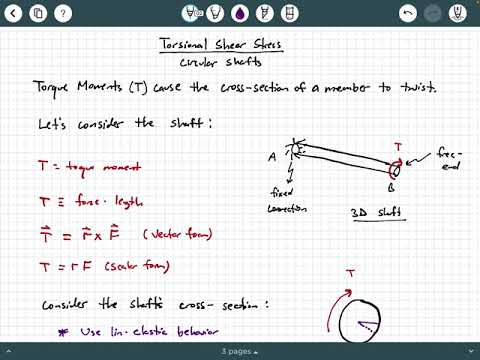 Torsional Shear Stress
circular shafts
Torque Moments (T) cause the cross-section of a member to twist.
Let's consider the shaft:
A
T
free-
end
B
fixed
connection
3D shaft
T = torque moment
T ≡ force · length
T⃗ = r⃗ x F⃗ (vector form)
T = r F (scalar form)
T
Consider the shaft's cross-section:
* Use lin-elastic behavior
3 pages